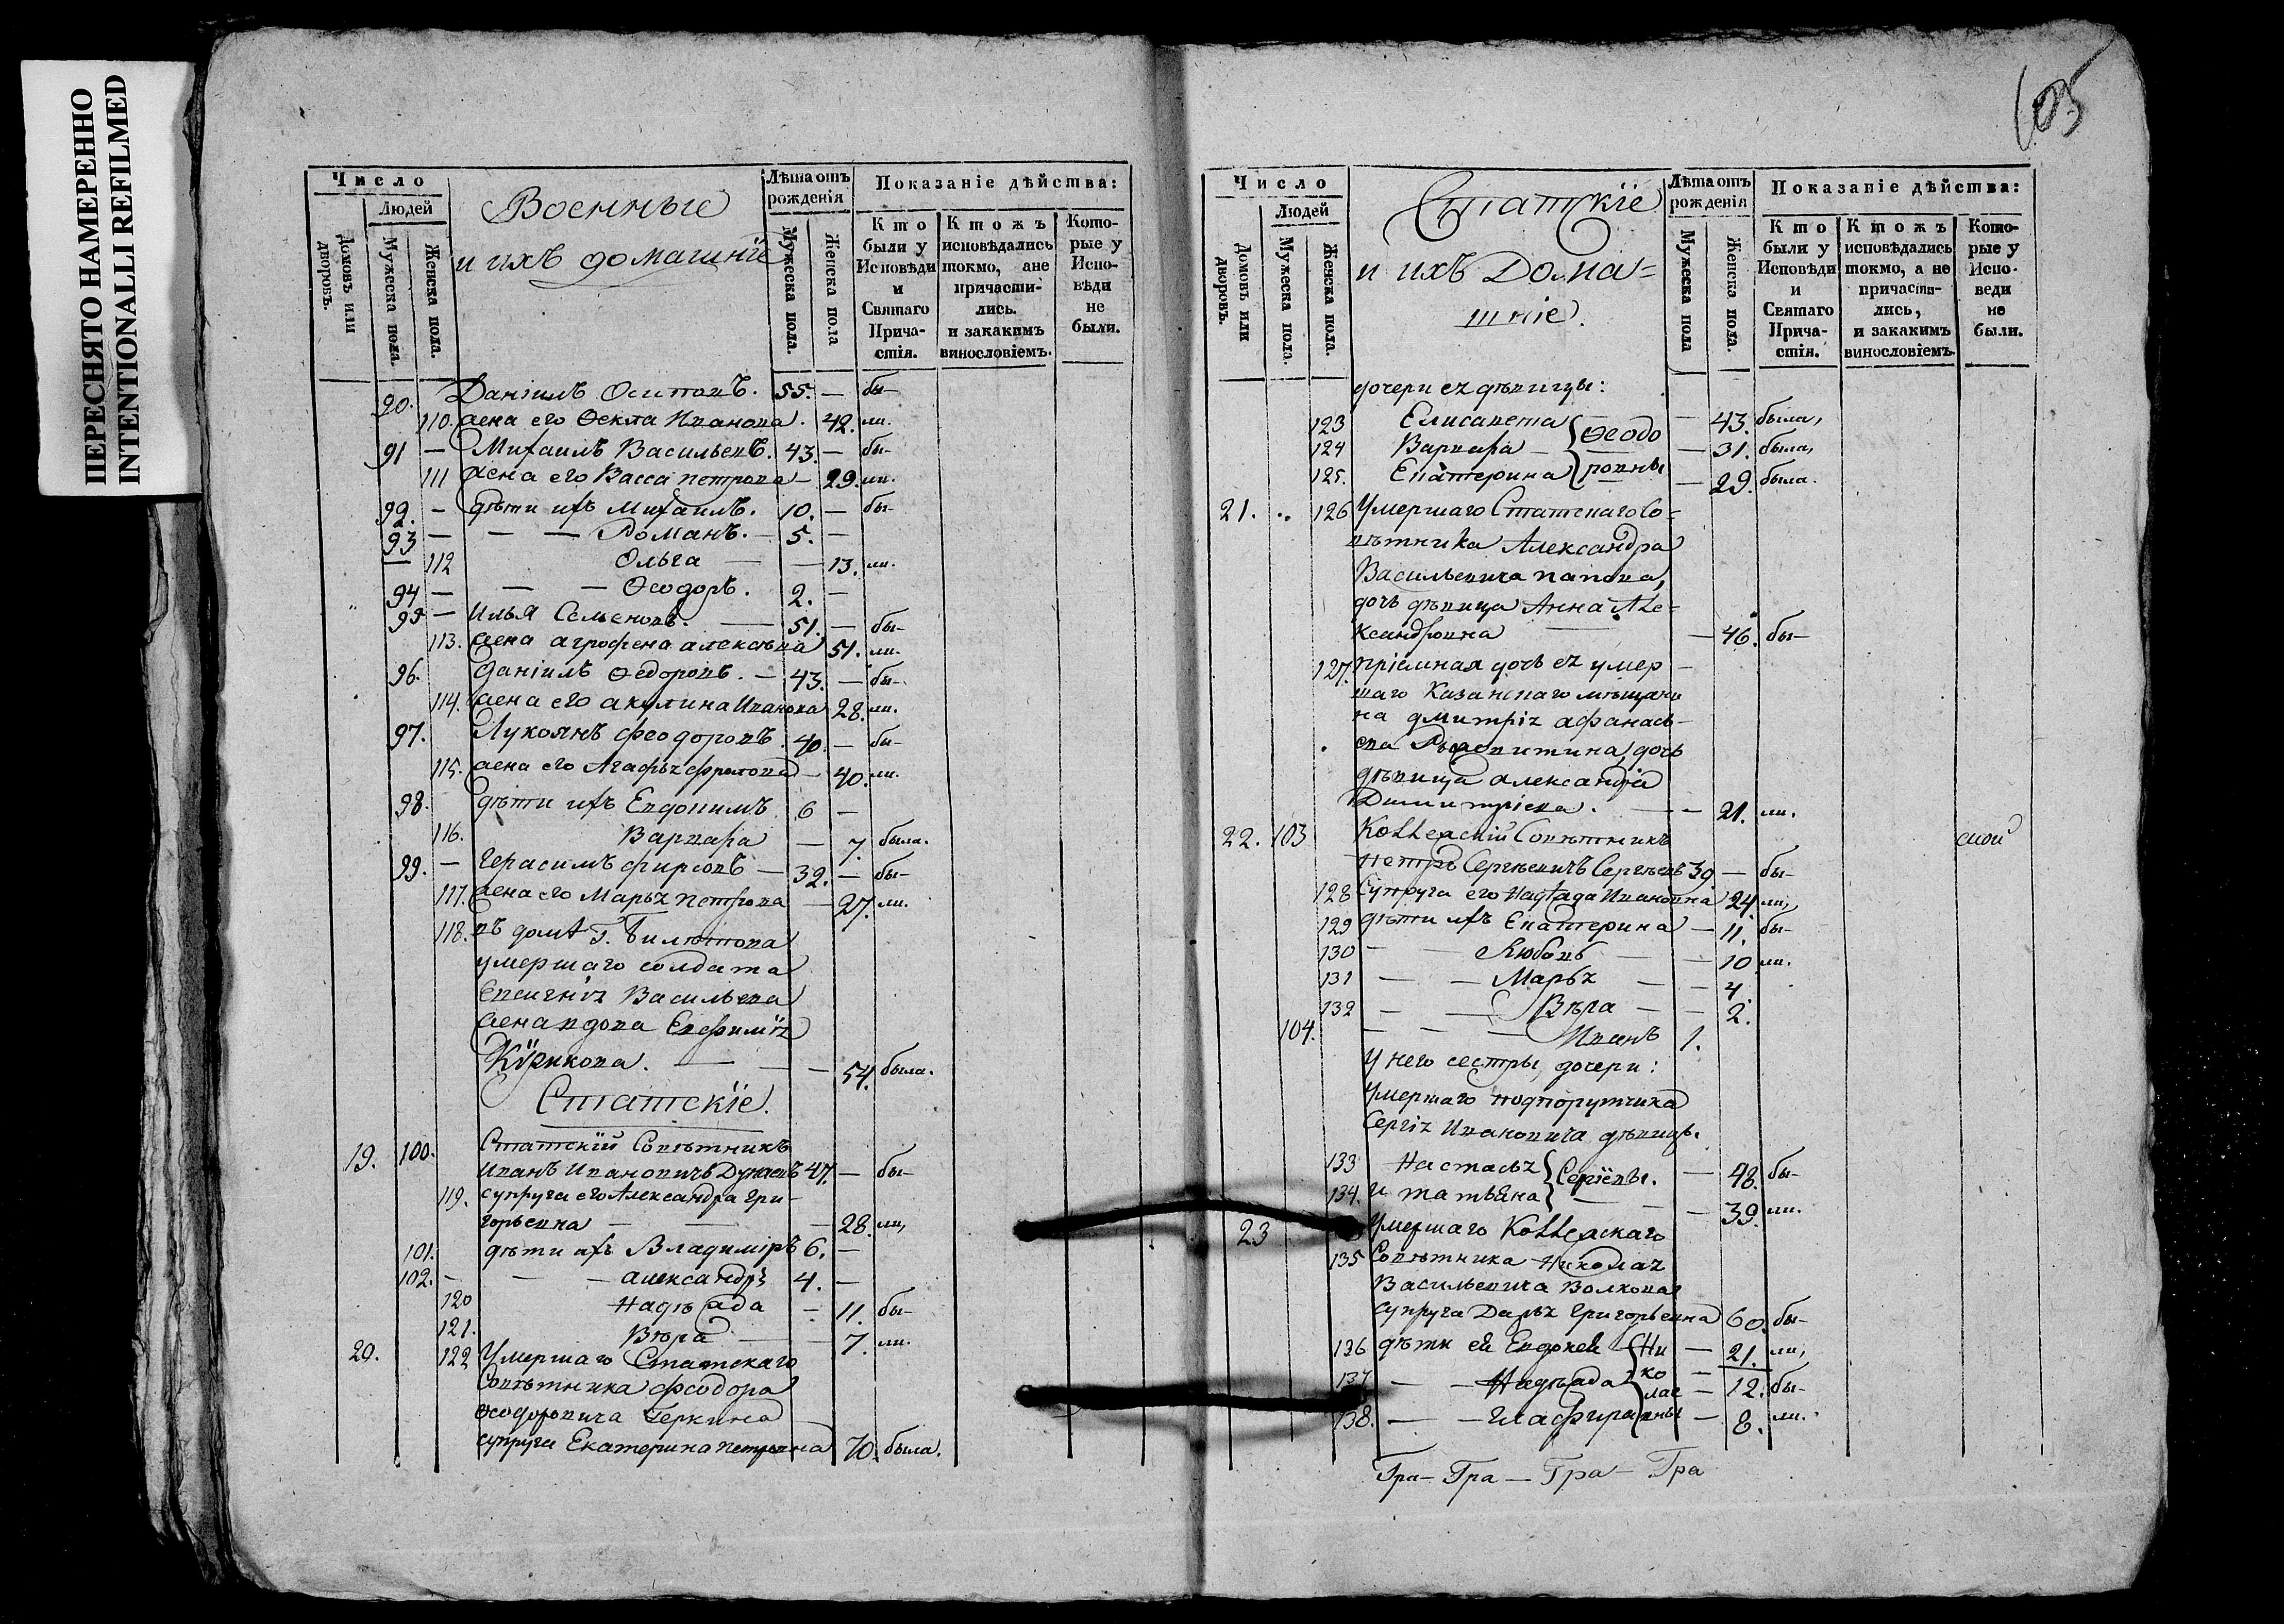 ПЕРЕСНЯТО НАМЕРЕННО
INTENTIONALLI REFILMED
Число
Людей
Домовъ или дворовъ.
Мужеска пола.
Женска пола.
Военные
и ихъ домашніе
Лѣта отъ рожденія
Мужеска пола.
Женска пола
Показаніе дѣйства:
Кто были у Исповѣди и Святаго Прича-стія.
Ктожъ исповѣдались токмо, ане причасти-лись. и закакимъ винословіемъ.
Кото-рые у Испо-вѣди не были.
90. Даніилъ Осиповъ. 55. — бы-
110. жена его Ѳекла Иванова. 42. ли.
91 — Михаилъ Васильевъ. 43. — бы-
111 жена его Васса петрова — 29. ли.
92. — дѣти ихъ Михаилъ. 10. — бы-
93 — — — Романъ. — 5. —
112 Ольга — — 13. ли.
94 — — — Ѳеодоръ. 2. —
95 — Илья Семеновъ. — 51. — бы-
113. жена агрофена алексѣева 51. ли.
96. Даніилъ Ѳедоровъ. — 43. — бы-
114. жена его акулина Иванова 28. ли.
97. Лукоянъ феодоровъ. 40. — бы-
115. жена его Агафья фролова — 40. ли.
98. дѣти ихъ Евдокимъ 6 —
116. Варвара — 7. была.
99. — Герасимъ фирсовъ — 32. — бы-
117. жена его Марья петрова — 27. ли.
118. въ домѣ Г. Билютова
умершаго солдата
Евсигнія Васильева
жена вдова Евфимія
Курикова. — — 54. была.
Статскіе.
19. 100. Статскій Совѣтникъ
Иванъ Ивановичъ Дунаевъ 47. — бы-
119. супруга его Александра Гри-
горьевна — — — 28. ли,
101. дѣти ихъ Владиміръ 6. —
102. — — — александръ 4. —
120 Надѣжда — 11. бы-
121. Вѣра — — 7. ли.
20. 122 Умершаго Статскаго
Совѣтника феодора
Ѳеодоровича Геркина
супруга Екатерина петровна 70. была.
105
Число
Людей
Домовъ или дворовъ.
Мужеска пола.
Женска пола.
Статскіе
и ихъ Дома=
шніе.
Лѣта отъ рожденія
Мужеска пола
Женска пола.
Показаніе дѣйства:
Кто были у Исповѣди и Святаго Прича-стія.
Ктожъ исповѣдались токмо, а не причасти-лись, и закакимъ винословіемъ.
Кото-рые у Испо-веди не были.
дочери ея дѣвицы:
123 Елисавета — 43. была,
124 Варвара — Ѳеодо — 31. была,
125. Екатерина ровны — 29. была.
21. .. 126 Умершаго Статскаго Со=
вѣтника Александра
Васильевича папова,
дочь дѣвица Анна Але-
ксандровна — — 46. бы-
127. пріемная дочь ея умер-
шаго Казанскаго мѣщани
на дмитрія афанась-
ева дочь
дѣвица александра
Димитріева. — — 21. ли.
22. 103 Коллежскій Совѣтникъ
петръ Сергѣевичъ Сергѣевъ 39. — бы-
128 Супруга его Надѣжда Ивановна 24 ли,
129 дѣти ихъ Екатерина — 11. бы-
130 — — Любовь — — 10 ли.
131 — — Марья — — 4.
132 — — Вѣра — — 2.
104. — — — Иванъ 1.
У него сестры, дочери:
Умершаго подпорутчика
Сергія Ивановича дѣвицы.
133 Настасья Сергіевы. — 48. бы-
134. и татьяна — — 39. ли.
23 Умершаго Коллежскаго
135 Совѣтника Николая
Васильевича Волкова
супруга Дарья Григорьевна 60. бы-
136 дѣти ей Евдокея Ни — 21. ли,
137 — — Надѣжда ко лае — 12. бы-
138. — — Глафира вны — 8. ли.
Гра- Гра — Гра — Гра